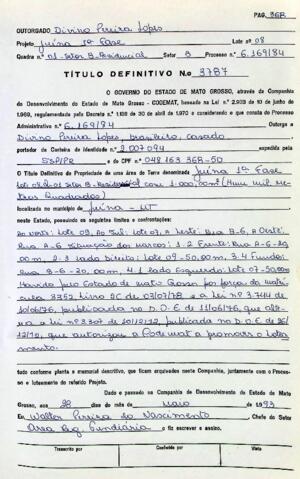 PAG. 36R
OUTORGADO Divino Pereira Lopes
Projeto Juina 1ª Fase Lote nº 08
Quadra nº 01-Setor B-Residencial Setor B Processo nº 6.169/84
TÍTULO DEFINITIVO N.o 3787
O GOVERNO DO ESTADO DE MATO GROSSO, através da Companhia
de Desenvolvimento do Estado de Mato Grosso - CODEMAT, baseado na Lei n.º 2.903 de 10 de junho
de 1969, regulamentada pelo Decreto n.º 1.108 de 30 de abril de 1970 e considerando o que consta do Processo
Administrativo n.º 6.169/84 Outorga a
Divino Pereira Lopes, brasileiro, casado
portador da Carteira de Identidade n.º 2.007.094
SSP/PR e do CPF n.º 048.163 369-50
O Título Definitivo de Propriedade de uma área de Terra denominada Juina 1ª Fase
Lote 08 B-01-Setor B-Residencial com 1.000,00m² (Hum mil me-
tros Quadrados)
localizada no município de Juina - MT
neste Estado, possuindo os seguintes limites e confrontações:
ao Norte: Lote 09, ao Sul: Lote 07, a Leste: Rua B-6, a Oeste:
Rua A-6 Situação dos Marcos: 1-2 Frente: Rua A-6-20,
00m, 2-3 Lado Direito: Lote 09-50,00m, 3-4 Fundos:
Rua B-6-20,00m, 4-1 Lado Esquerdo: Lote 07-50,00m
Havida pelo Estado de Mato Grosso por força da matrí-
cula 3352, Livro 2C de 03/07/78 e a Lei nº 3.744 de
10/06/76, publicada no D.O.E de 11/06/76, que alte-
ra a Lei nº 3.307 de 20/12/72, publicada no D.O.E de 26/
12/72, que autorizou a Codemat a promover o Lotea-
mento.
tudo conforme planta e memorial descritivo, que ficam arquivados nesta Companhia, juntamente com o Proces-
so e loteamento do referido Projeto.
Dado e passado na Companhia de Desenvolvimento do Estado de Mato
Grosso, aos 28 dias do mês de Maio de 1993
Eu, Walton Pereira do Nascimento Chefe do Setor
Área Reg. Fundiária o fiz escrever e assino.
Transcrito por
Conferido por
Visto